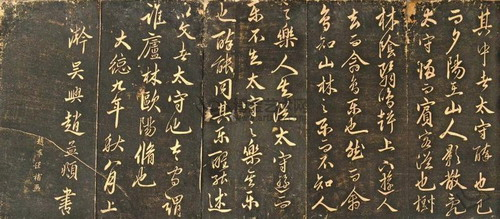 其中者太守醉也已
而夕陽在山人影散亂
太守歸而賓客從也樹
林陰翳鳴聲上下遊人
去而禽鳥樂也然而禽
鳥知山林之樂而不知人
之樂人知從太守遊而
樂不知太守之樂其樂
也醉能同其樂醒能述
以文者太守也太守謂
誰廬陵歐陽脩也
大德九年秋八月上
澣吳興趙孟頫書